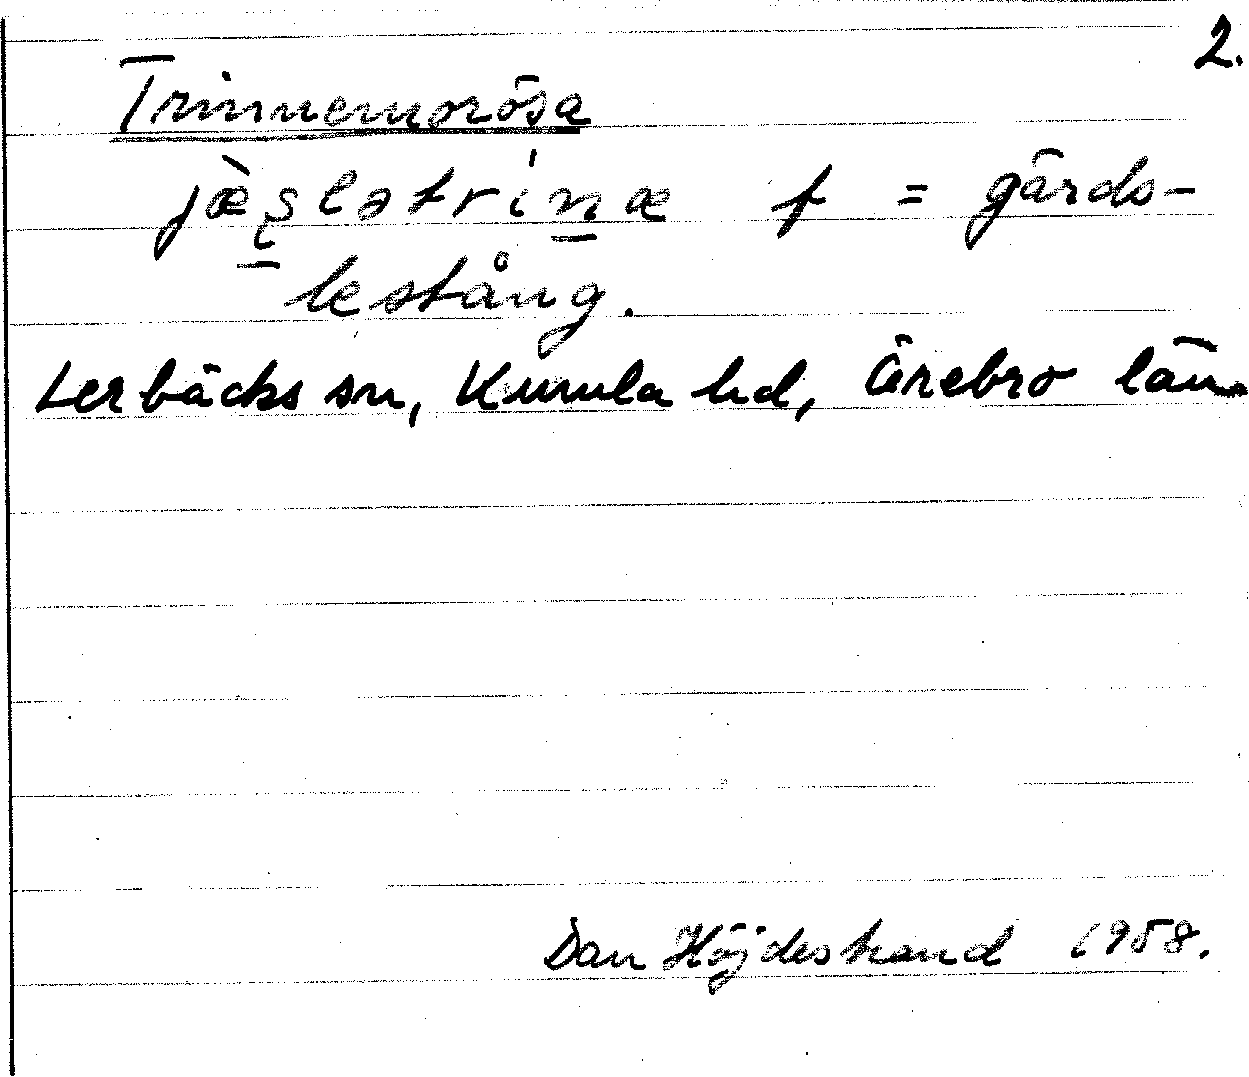 2.
Trinnemorösa
jæ̀ʂlətrínæ f = gärds-
lestång.
Lerbäcks sn, Kumla hd, Örebro län
Dan Höjdestrand 1958.